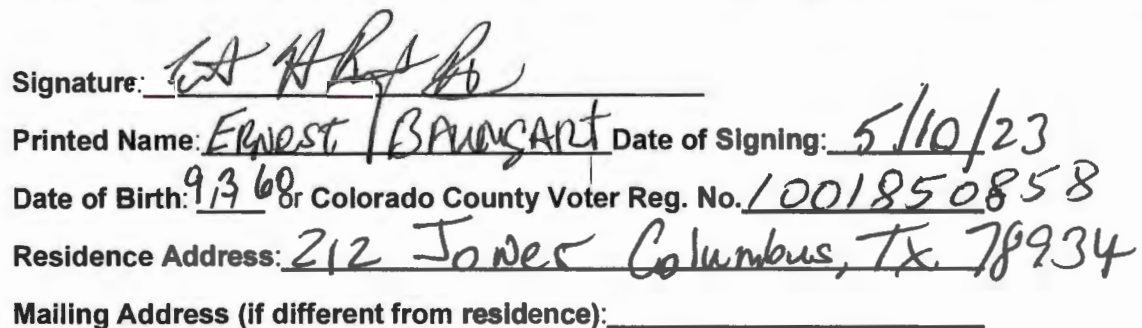 Signature:
Printed Name: ERNEST BAUMGART Date of Signing: 5/10/23
Date of Birth: 9/3 68 or Colorado County Voter Reg. No. 1001850858
Residence Address: 212 Columbus, TX 78934
Mailing Address (if different from residence):